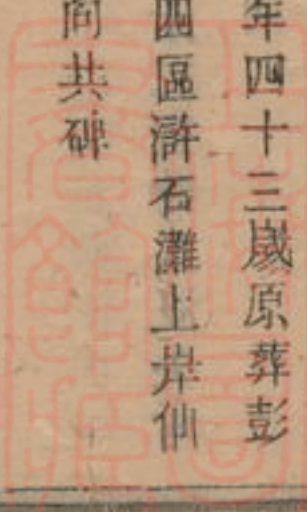 年四十三歲原葬彭
四區滸石灘上岸仙
向共碑